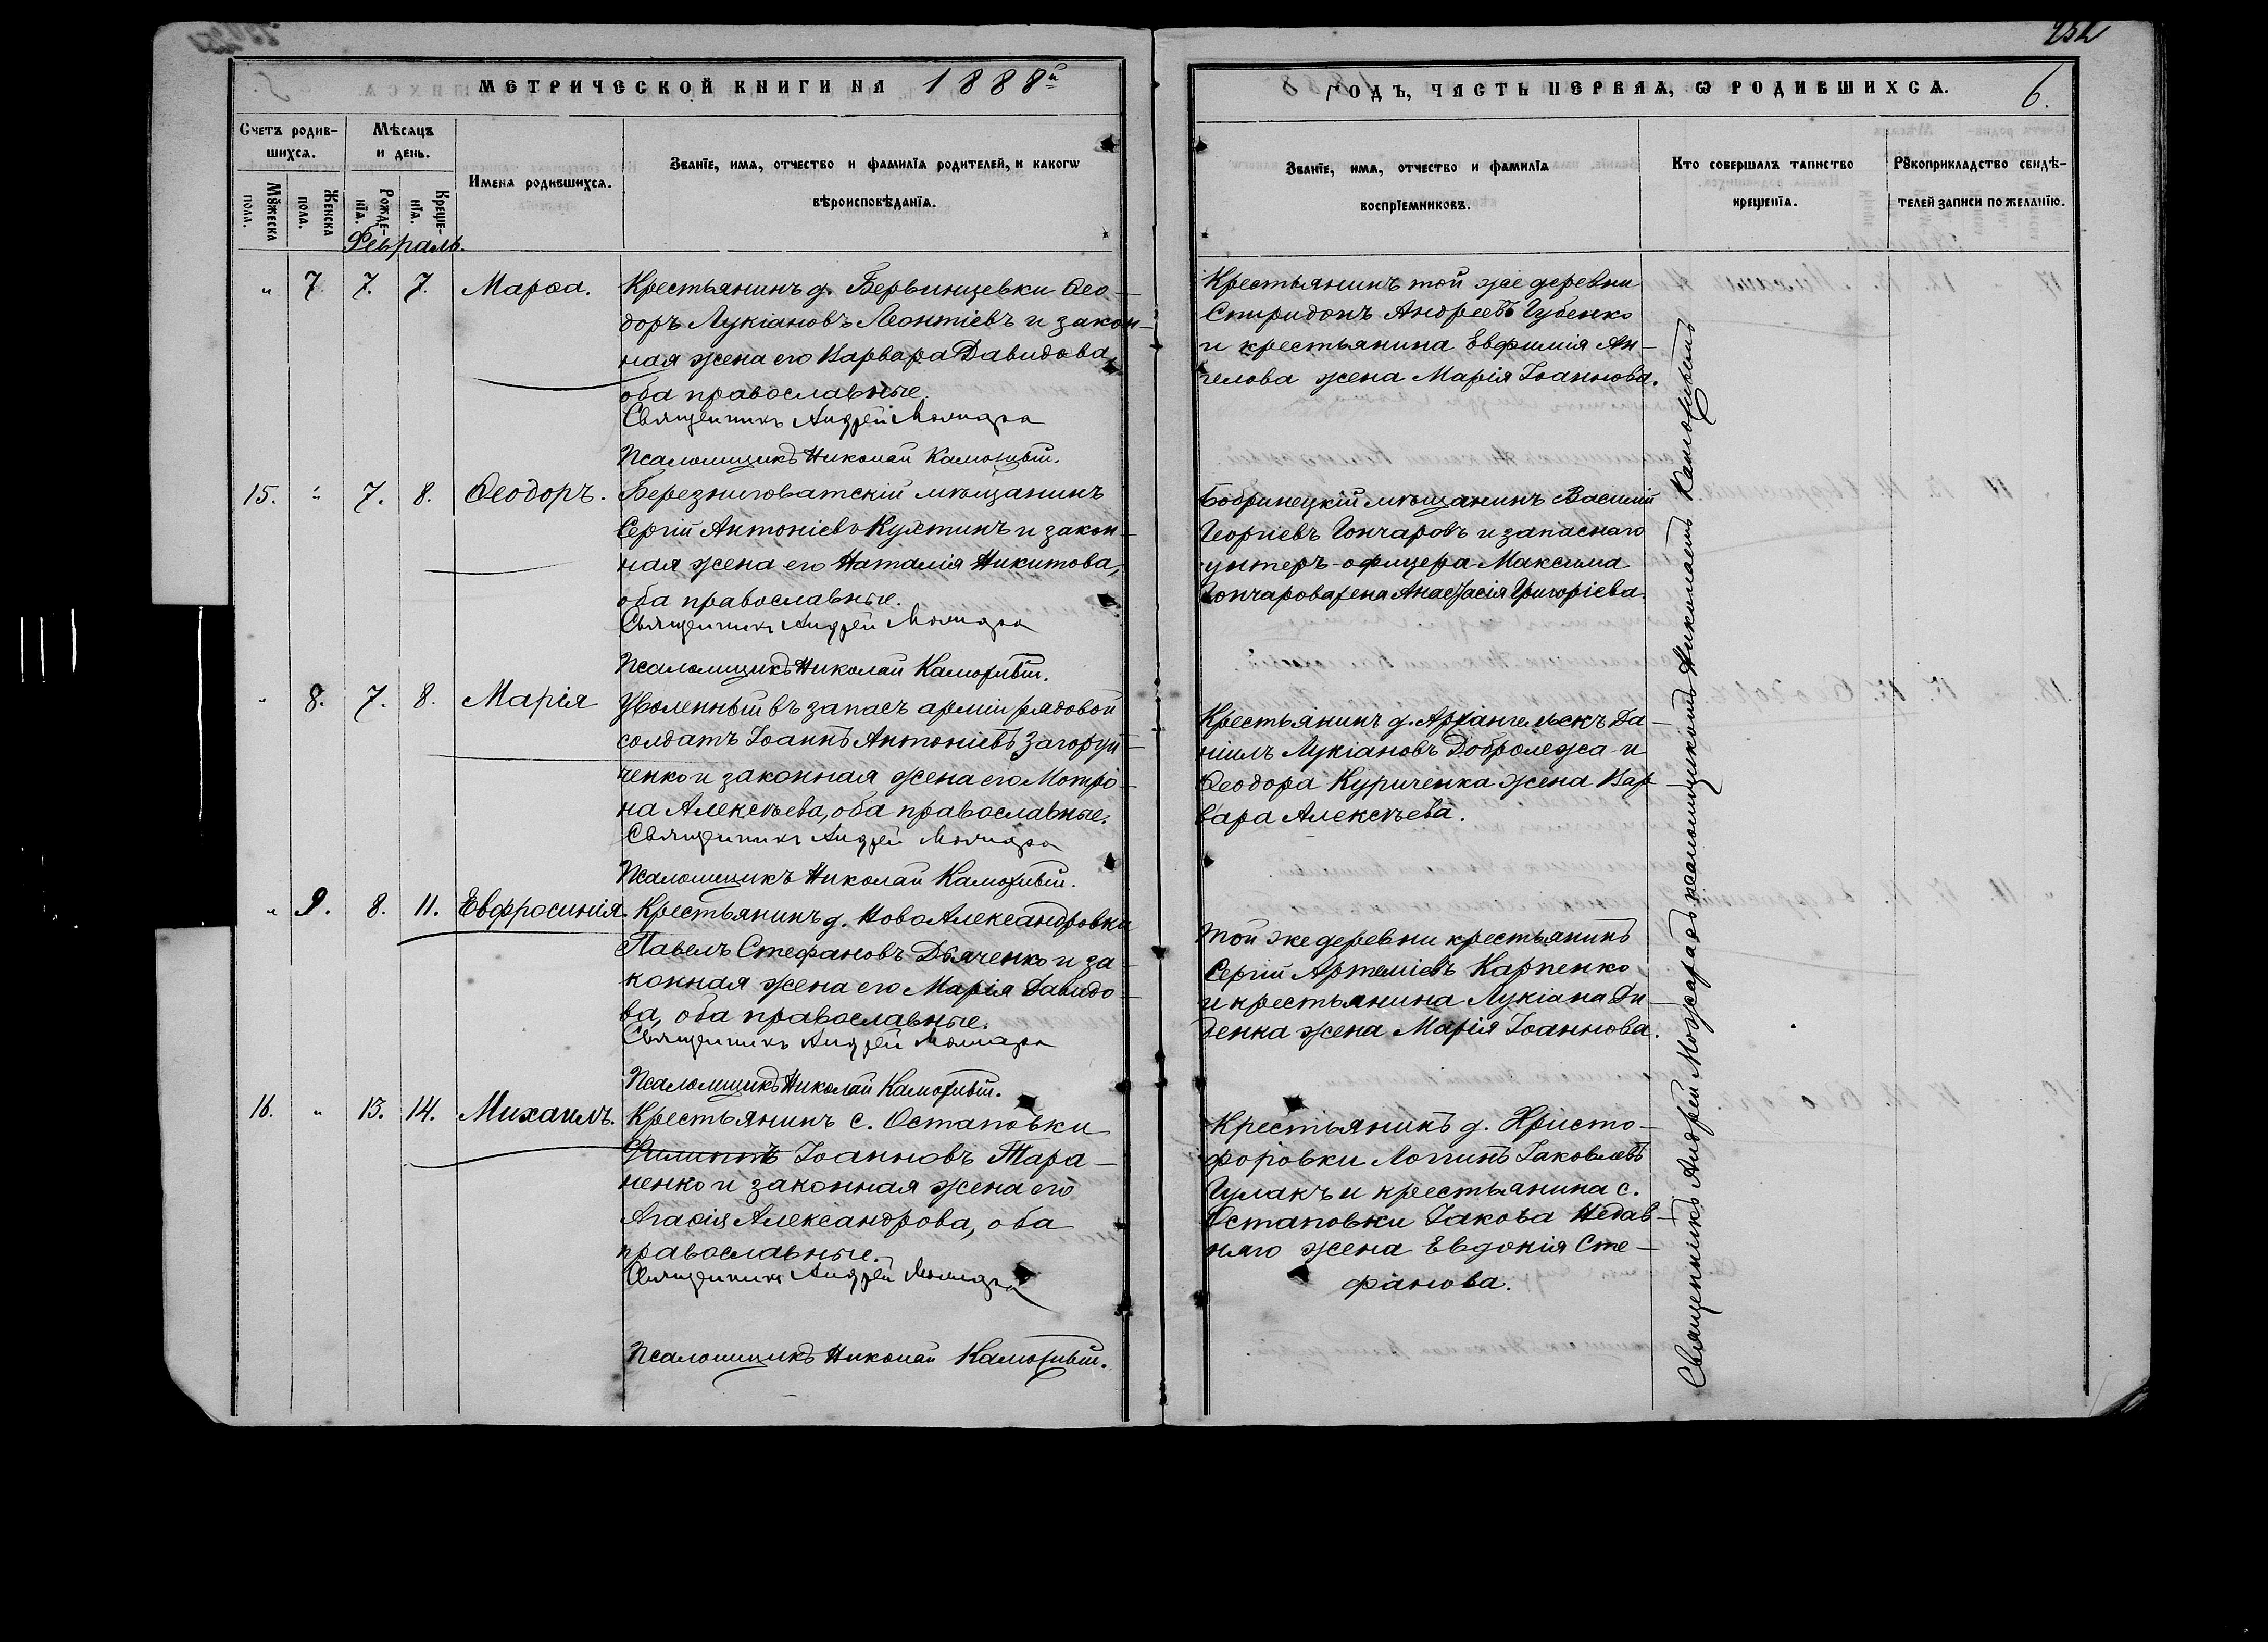 252
МЕТРИЧЕСКОЙ КНИГИ НА 1888й
ГОДЪ, ЧАСТЬ ПЕРВАЯ, Ѡ РОДИВШИХСЯ.
6.
Счетъ родив-
шихся.
Мѣсяцъ
и день.
Мꙋжеска
пола.
Женска
пола.
Рожде-
нїя.
Креще-
нїя.
Имена родившихся.
Званїе, имя, отчество и фамилїя родителей, и какогѡ
вѣроисповѣданїя.
Званїе, имя, отчество и фамилїя
воспрїемниковъ.
Кто совершалъ таинство
крещенїя.
Рꙋкоприкладство свидѣ-
телей записи по желанїю.
Февраль.
" 7 7. 7. Марѳа.
Крестьянинъ д. Вервинцевки Ѳео-
доръ Лукіановъ Леонтіевъ и закон-
ная жена его Варвара Давидова,
оба православные.
Священникъ Андрей
Псаломщикъ Николай
Крестьянинъ той же деревни
Спиридонъ Андреевъ Губенко
и крестьянина Евфимія Ан-
гелова жена Марія Іоаннова.
15. " 7. 8. Ѳеодоръ.
Березниговатскій мѣщанинъ
Сергій Антоніевъ и закон-
ная жена его Наталія Никитова,
оба православные.
Священникъ Андрей
Псаломщикъ Николай
Бобринецкій мѣщанинъ Василій
Георгіевъ Гончаровъ и запаснаго
унтеръ-офицера Максима
Гончарова жена Анастасія Григоріева.
" 8. 7. 8. Марія
Уволенный въ запасъ арміи рядовой
солдатъ Іоаннъ Антоніевъ Загоруй-
ченко и законная жена его Мотро-
на Алексѣева, оба православные.
Священникъ Андрей
Псаломщикъ Николай
Крестьянинъ д. Архангельскъ Да-
ніилъ Лукіановъ Доброледжа и
Ѳеодора Куриченка жена Вар-
вара Алексѣева.
" 9. 8. 11. Евфросинія.
Крестьянинъ д. НовоАлександровки
Павелъ Стефановъ Дяченко и за-
конная жена его Марія Давидо-
ва, оба православные.
Священникъ Андрей
Псаломщикъ Николай
Той же деревни крестьянинъ
Сергій Артеміевъ Карпенко
и крестьянина Лукіана Ди-
денка жена Марія Іоаннова.
16. " 13. 14. Михаилъ.
Крестьянинъ с. Остаповки
Филиппъ Іоанновъ Тара-
ненко и законная жена его
Агафія Александрова, оба
православные.
Священникъ Андрей
Псаломщикъ Николай
Крестьянинъ д. Христо-
форовки Логинъ Іаковлевъ
Гулакъ и крестьянина с.
Остаповки Іакова Недав-
няго жена Евдокія Сте-
фанова.
Священникъ Андрей псаломщикомъ Николаемъ